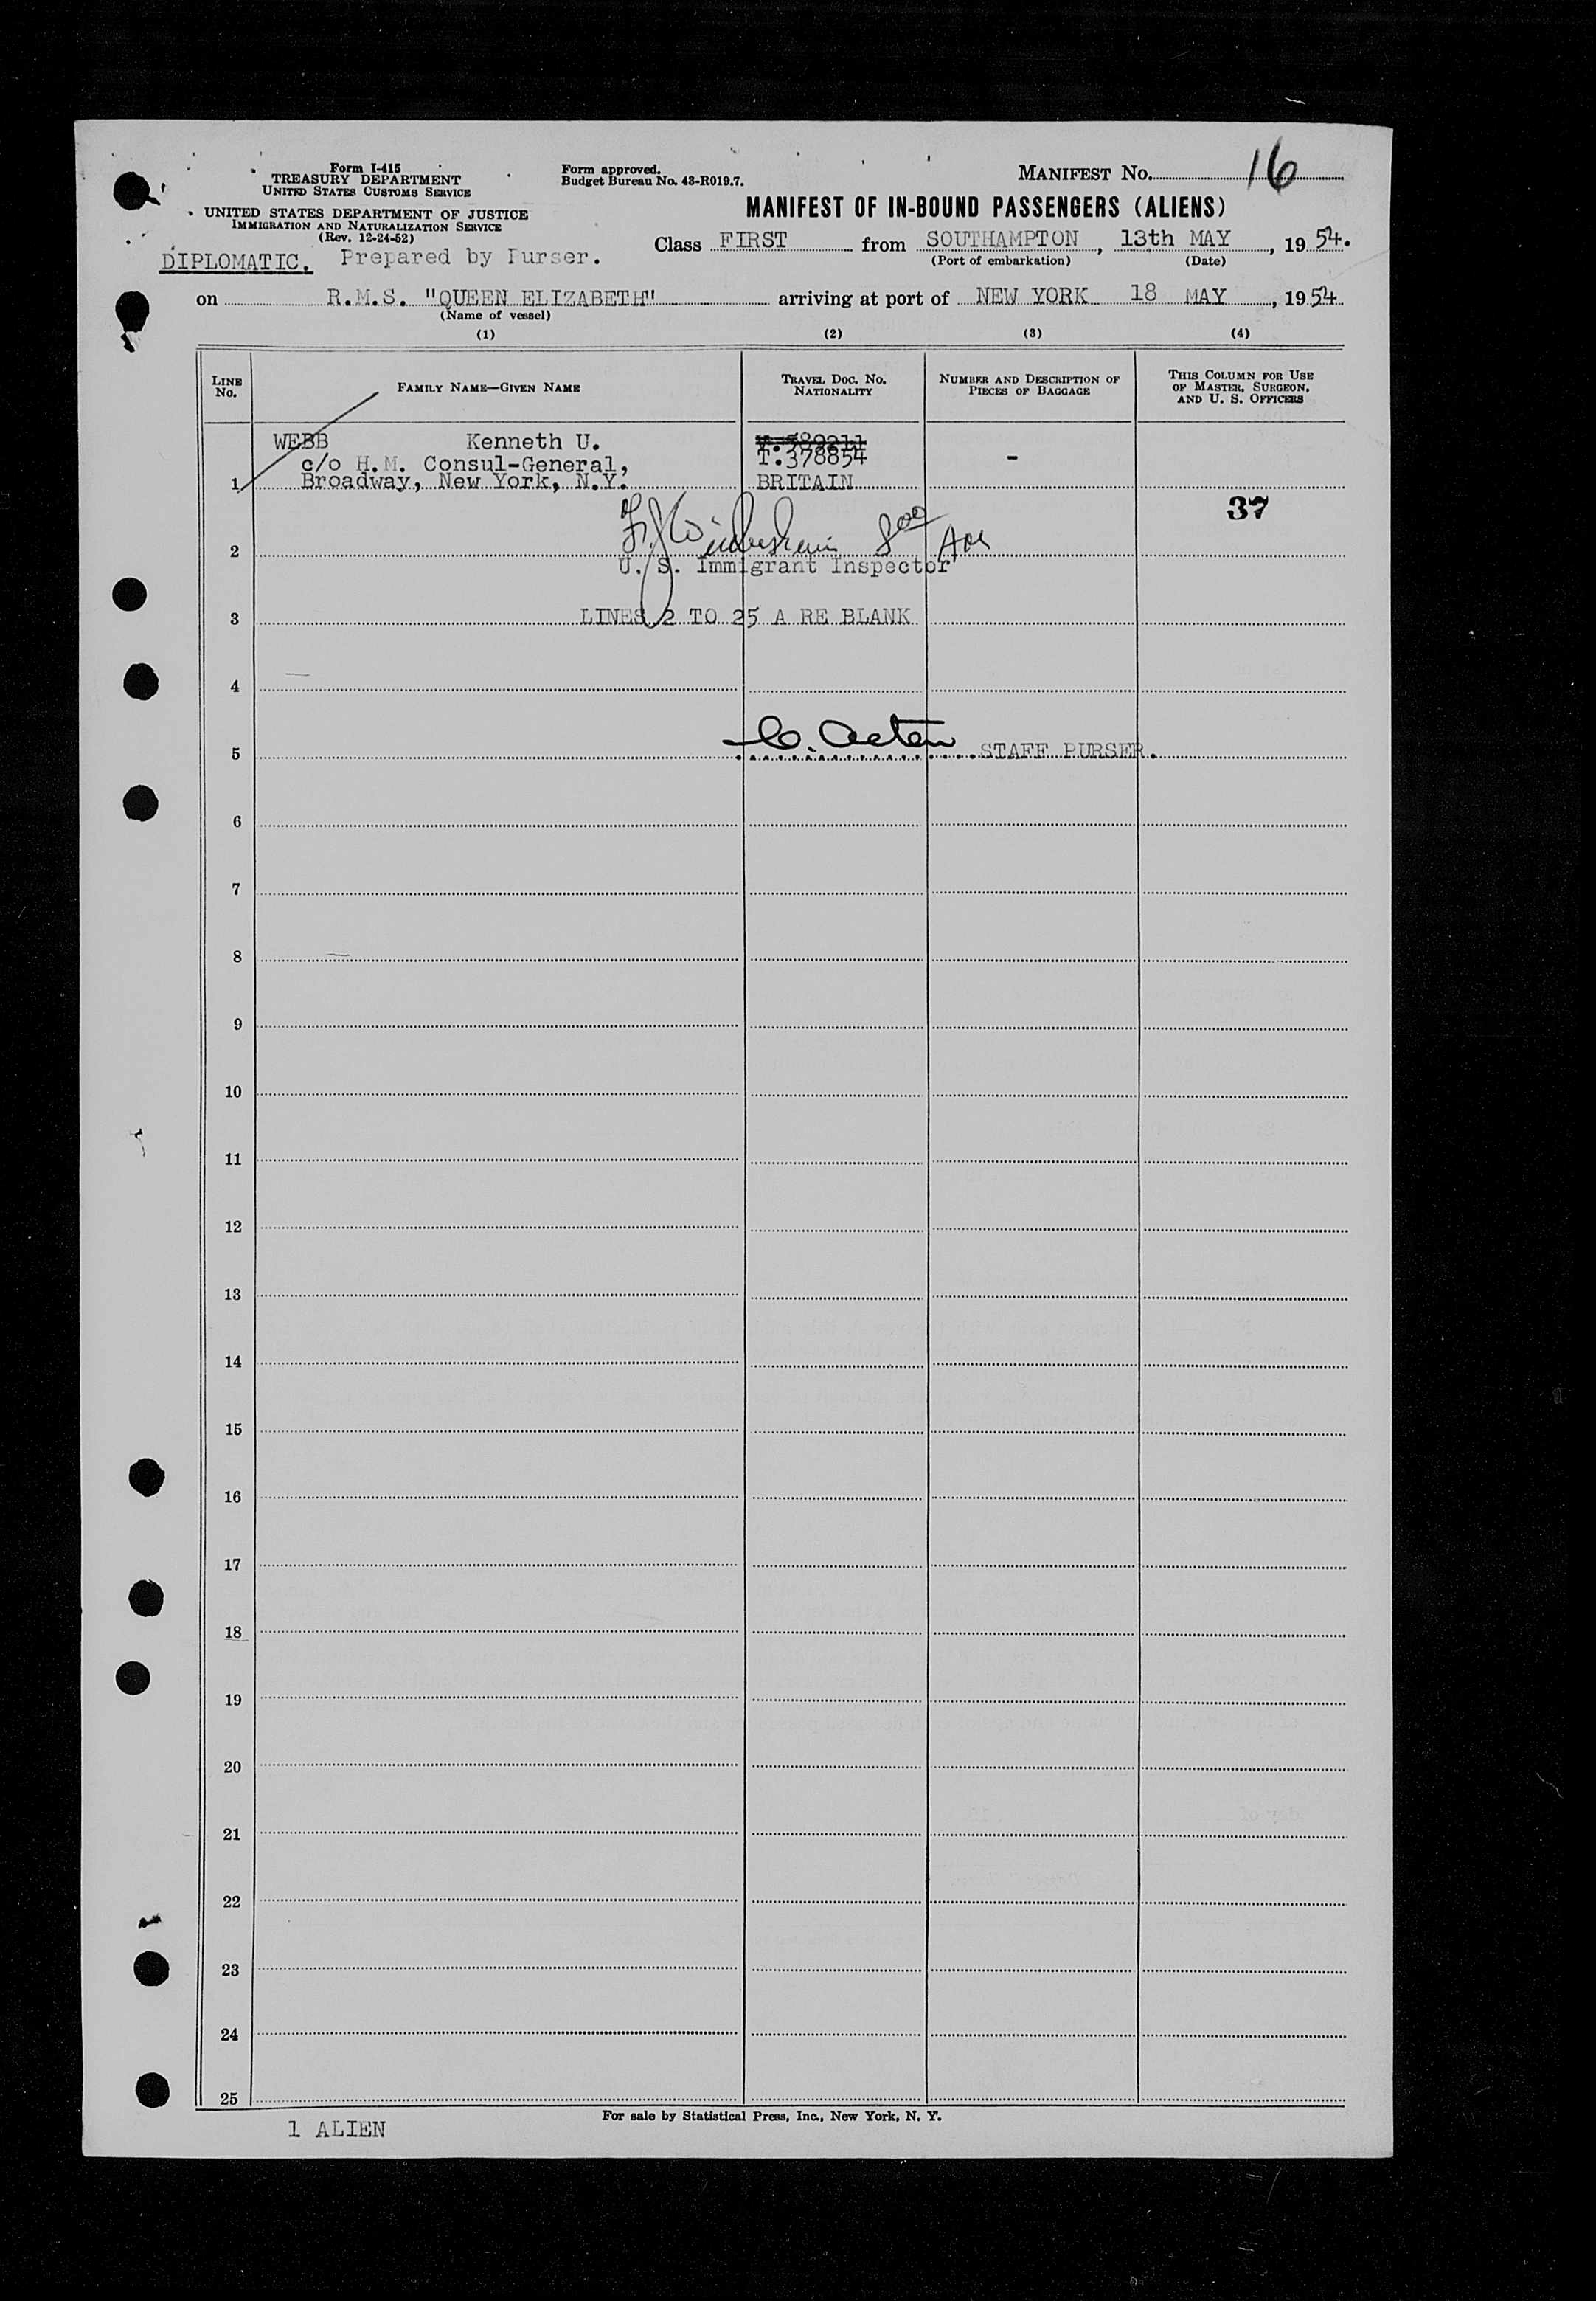 Form I-415
TREASURY DEPARTMENT
UNITED STATES CUSTOMS SERVICE
UNITED STATES DEPARTMENT OF JUSTICE
IMMIGRATION AND NATURALIZATION SERVICE
(Rev. 12-24-52)
Form approved.
Budget Bureau No. 43-R019.7.
MANIFEST No. 16
MANIFEST OF IN-BOUND PASSENGERS (ALIENS)
Class FIRST from SOUTHAMPTON, 13th MAY, 1954.
(Port of embarkation) (Date)
DIPLOMATIC. Prepared by Purser.
on R.M.S. "QUEEN ELIZABETH" arriving at port of NEW YORK 18 MAY, 1954
(Name of vessel)
(1) (2) (3) (4)
LINE No.
FAMILY NAME—GIVEN NAME
TRAVEL DOC. No. NATIONALITY
NUMBER AND DESCRIPTION OF PIECES OF BAGGAGE
THIS COLUMN FOR USE OF MASTER, SURGEON, AND U. S. OFFICERS
WEBB Kenneth U.
c/o H.M. Consul-General, T.378854 -
1 Broadway, New York, N.Y. BRITAIN
37
2
U. S. Immigrant Inspector
3 LINES 2 TO 25 A RE BLANK
4
5 STAFF PURSER.
6
7
8
9
10
11
12
13
14
15
16
17
18
19
20
21
22
23
24
25
For sale by Statistical Press, Inc., New York, N. Y.
1 ALIEN